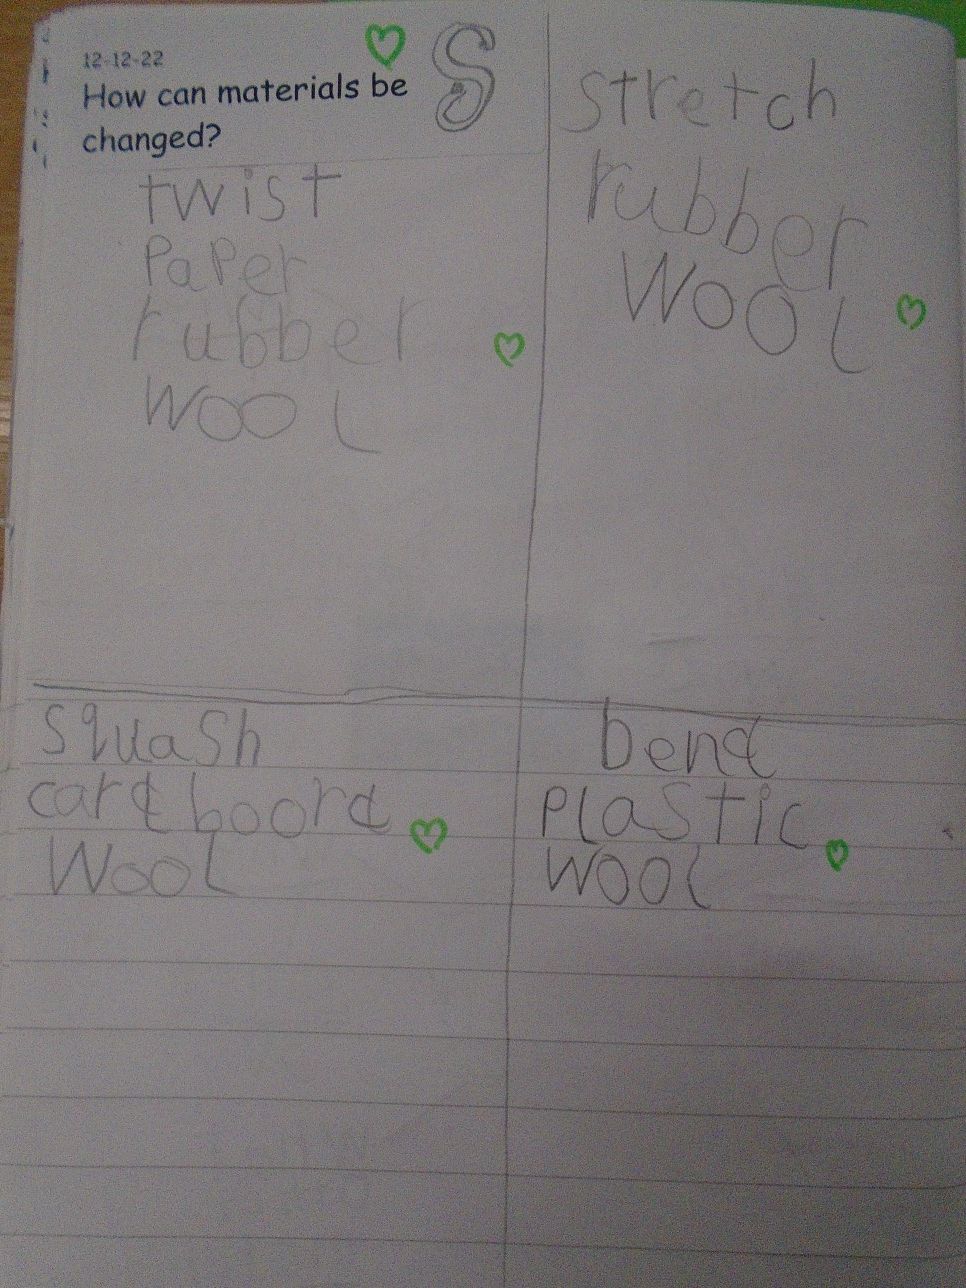 12-12-22
How can materials be
changed?
S
twist
Paper
rubber
wool
stretch
rubber
wool
squash
cardboord
wool
bend
plastic
wool